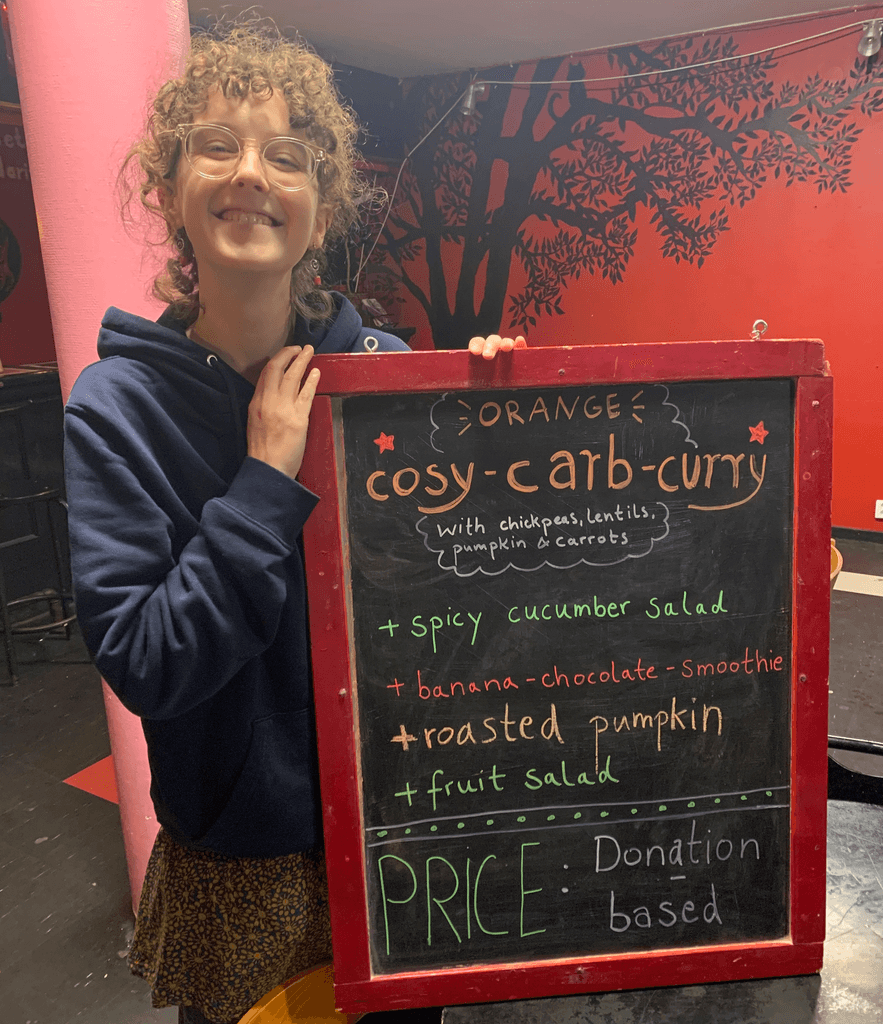 ORANGE
cosy-carb-curry
with chickpeas, lentils,
pumpkin & carrots
+ spicy cucumber salad
+ banana-chocolate-smoothie
+ roasted pumpkin
+ fruit salad
PRICE: Donation
based